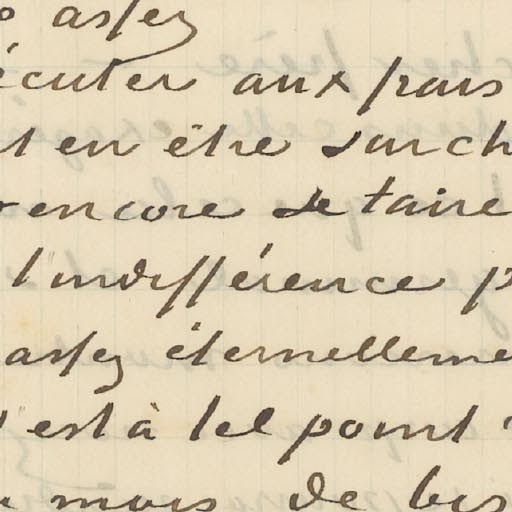 assez
écuter aux frais
t en être surch
encore se taire
l'indifférence p
assez éternelleme
'est à tel point
mois de bis